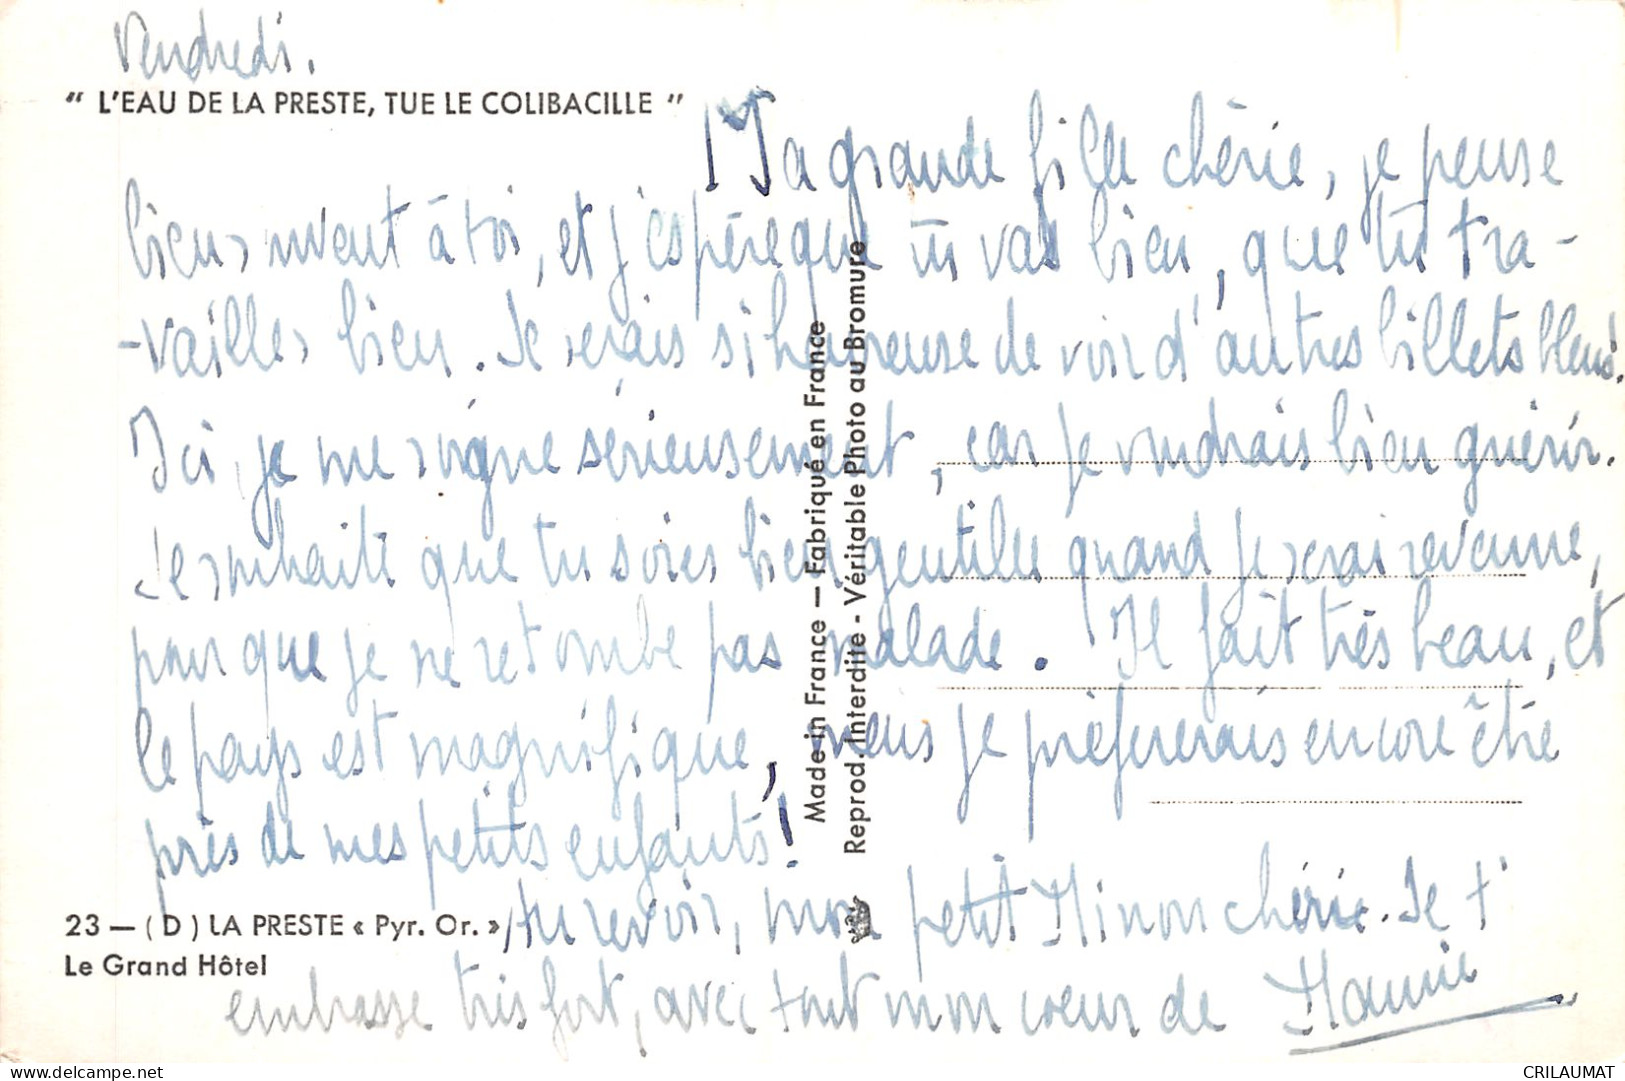 Vendredi.
" L'EAU DE LA PRESTE, TUE LE COLIBACILLE "
Ma grande fille chérie, je pense
bien souvent à toi, et j'espère que tu vas bien, que tu tra-
-vailles bien. Je serais si heureuse de voir d'autres billets bleus!
Ici, je me soigne sérieusement, car je voudrais bien guérir.
Je souhaite que tu soies bien gentille quand je serai revenue,
pour que je ne retombe pas malade. Il fait très beau, et
le pays est magnifique, mais je préfèrerais encore être
près de mes petits enfants!
Au revoir, mon petit Minon chérie. Je t'
embrasse très fort, avec tout mon coeur de Mamie
23 — ( D ) LA PRESTE « Pyr. Or. »
Le Grand Hôtel
Made in France — Fabriqué en France
Reprod. Interdite - Véritable Photo au Bromure
delcampe.net
CRILAUMAT